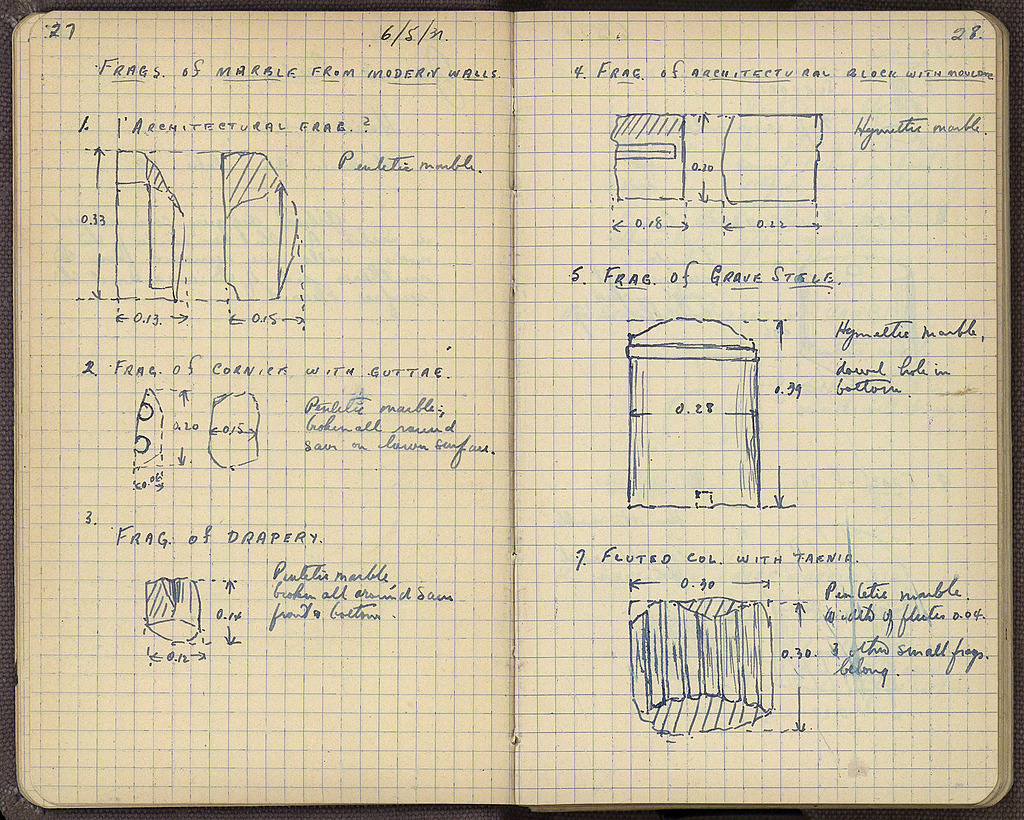 27
6/5/31.
FRAGS. of MARBLE FROM MODERN WALLS.
1. ARCHITECTURAL FRAG.?
Pentelic marble.
0.33
0.13
0.15
2. FRAG. OF CORNICE WITH GUTTAE.
Pentelic marble;
broken all round
save on lower surface.
0.20
0.15
0.06
3.
FRAG. of DRAPERY.
Pentelic marble
broken all around save
front & bottom.
0.14
0.12
28.
4. FRAG. of ARCHITECTURAL BLOCK WITH MOULDING
Hymettic marble.
0.20
0.18
0.22
5. FRAG. of GRAVE STELE.
Hymettic marble,
dowel hole in
bottom.
0.39
0.28
7. FLUTED COL. WITH TAENIA.
0.30
Pentelic marble.
Width of flutes 0.04.
0.30.
3 other small frags.
belong.